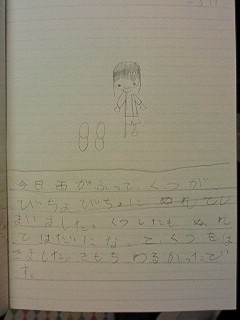 今日雨がふって、くつが、
びちょびちょに ぬれてし
まいました。くつしたも ぬれ
てはだしになって、くつをは
きました。きもちわるかったで
す。